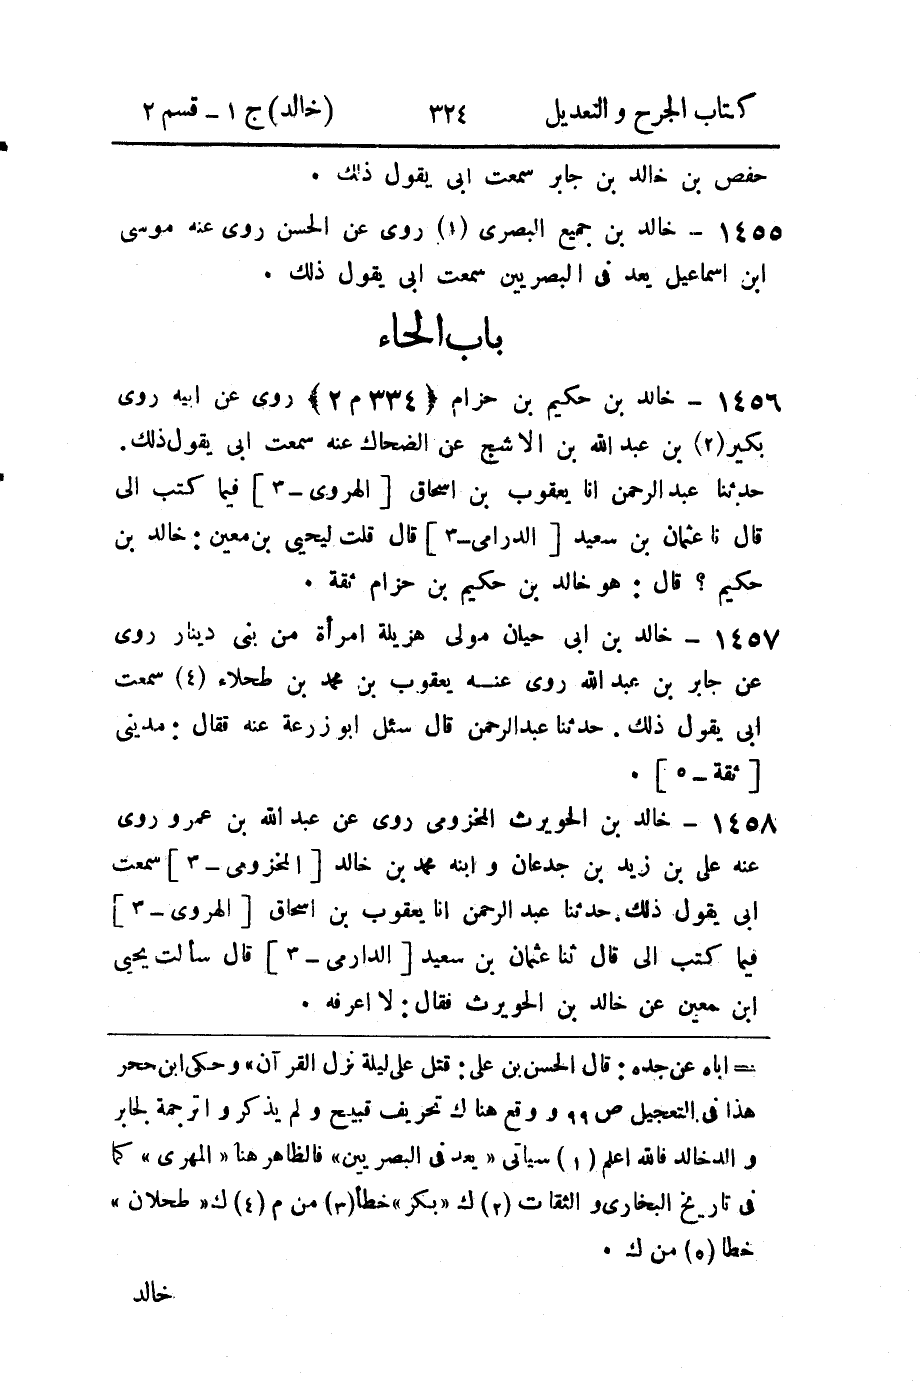 كتاب الجرح و التعديل ٣٢٤ (خالد) ج ١ - قسم ٢
حفص بن خالد بن جابر سمعت ابى يقول ذلك .
١٤٥٥ - خالد بن جميع البصرى (١) روى عن الحسن روى عنه موسى
ابن اسماعيل يعد فى البصريين سمعت ابى يقول ذلك .
باب الحاء
١٤٥٦ - خالد بن حكيم بن حزام ﴿٣٣٤ م ٢﴾ روى عن ابيه روى
بكير(٢) بن عبد الله بن الاشج عن الضحاك عنه سمعت ابى يقول ذلك .
حدثنا عبد الرحمن انا يعقوب بن اسحاق [ الهروى - ٣ ] فيما كتب الى
قال نا عثمان بن سعيد [ الدرامى - ٣ ] قال قلت ليحيى بن معين : خالد بن
حكيم ؟ قال : هو خالد بن حكيم بن حزام ثقة .
١٤٥٧ - خالد بن ابى حيان مولى هزيلة امرأة من بنى دينار روى
عن جابر بن عبد الله روى عنه يعقوب بن محمد بن طحلاء (٤) سمعت
ابى يقول ذلك . حدثنا عبد الرحمن قال سئل ابو زرعة عنه فقال : مدينى
[ ثقة - ٥ ] .
١٤٥٨ - خالد بن الحويرث المخزومى روى عن عبد الله بن عمرو روى
عنه على بن زيد بن جدعان و ابنه محمد بن خالد [ المخزومى - ٣ ] سمعت
ابى يقول ذلك . حدثنا عبد الرحمن انا يعقوب بن اسحاق [ الهروى - ٣ ]
فيما كتب الى قال ثنا عثمان بن سعيد [ الدارمى - ٣ ] قال سألت يحيى
ابن معين عن خالد بن الحويرث فقال : لا اعرفه .
= اباه عن جده : قال الحسن بن على : قتل على ليلة نزل القرآن» و حكى ابن حجر
هذا فى التعجيل ص ٩٩ و وقع هناك تحريف قبيح و لم يذكروا ترجمة لجابر
والد خالد فالله اعلم (١) سيأتى « يعد فى البصريين» فالظاهر هنا « المهرى » كما
فى تاريخ البخارى و الثقات (٢) ك «بكر» خطأ (٣) من م (٤) ك « طحلان »
خطا (٥) من ك .
خالد